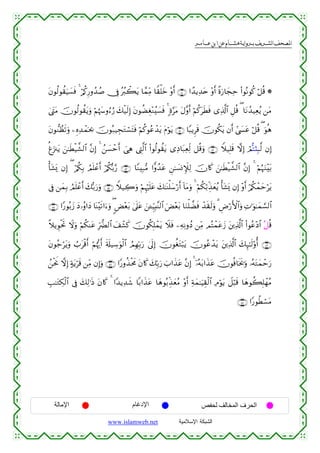 المصحف الشريف برواية هشام عن ابن عامر
۞ قُلۡ كُونُواْ حِجَارَةً أَوۡ حَدِيدًا ۝ أَوۡ خَلۡقٗا مِّمَّا يَكۡبُرُ فِي صُدُورِكُمۡۚ فَسَيَقُولُونَ
مَن يُعِيدُنَاۖ قُلِ ٱلَّذِي فَطَرَكُمۡ أَوَّلَ مَرَّةٖۚ فَسَيُنۡغِضُونَ إِلَيۡكَ رُءُوسَهُمۡ وَيَقُولُونَ مَتَىٰ
هُوَۖ قُلۡ عَسَىٰٓ أَن يَكُونَ قَرِيبٗا ۝ يَوۡمَ يَدۡعُوكُمۡ فَتَسۡتَجِيبُونَ بِحَمۡدِهِۦ وَتَظُنُّونَ
إِن لَّبِثتُّمۡ إِلَّا قَلِيلٗا ۝ وَقُل لِّعِبَادِي يَقُولُواْ ٱلَّتِي هِيَ أَحۡسَنُۚ إِنَّ ٱلشَّيۡطَٰنَ يَنزَغُ
بَيۡنَهُمۡۚ إِنَّ ٱلشَّيۡطَٰنَ كَانَ لِلۡإِنسَٰنِ عَدُوّٗا مُّبِينٗا ۝ رَّبُّكُمۡ أَعۡلَمُ بِكُمۡۖ إِن يَشَأۡ
يَرۡحَمۡكُمۡ أَوۡ إِن يَشَأۡ يُعَذِّبۡكُمۡۚ وَمَآ أَرۡسَلۡنَٰكَ عَلَيۡهِمۡ وَكِيلٗا ۝ وَرَبُّكَ أَعۡلَمُ بِمَن فِي
ٱلسَّمَٰوَٰتِ وَٱلۡأَرۡضِۗ وَلَقَدۡ فَضَّلۡنَا بَعۡضَ ٱلنَّبِيِّـۧنَ عَلَىٰ بَعۡضٖۖ وَءَاتَيۡنَا دَاوُۥدَ زَبُورٗا ۝
قُلُ ٱدۡعُواْ ٱلَّذِينَ زَعَمۡتُم مِّن دُونِهِۦ فَلَا يَمۡلِكُونَ كَشۡفَ ٱلضُّرِّ عَنكُمۡ وَلَا تَحۡوِيلًا
۝ أُوْلَٰٓئِكَ ٱلَّذِينَ يَدۡعُونَ يَبۡتَغُونَ إِلَىٰ رَبِّهِمُ ٱلۡوَسِيلَةَ أَيُّهُمۡ أَقۡرَبُ وَيَرۡجُونَ
رَحۡمَتَهُۥ وَيَخَافُونَ عَذَابَهُۥٓۚ إِنَّ عَذَابَ رَبِّكَ كَانَ مَحۡذُورٗا ۝ وَإِن مِّن قَرۡيَةٍ إِلَّا نَحۡنُ
مُهۡلِكُوهَا قَبۡلَ يَوۡمِ ٱلۡقِيَٰمَةِ أَوۡ مُعَذِّبُوهَا عَذَابٗا شَدِيدٗاۚ كَانَ ذَٰلِكَ فِي ٱلۡكِتَٰبِ
مَسۡطُورٗا ۝
الحرف المخالف لحفص الإدغام الإمالة
الشبكة الإسلامية www.islamweb.net